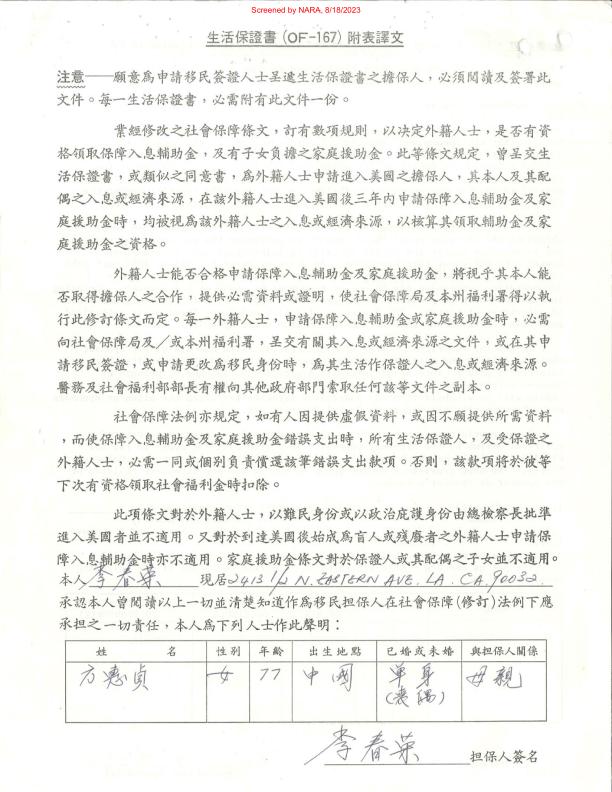 Screened by NARA, 8/18/2023
生活保證書(OF-167)附表譯文
注意──願意為申請移民簽證人士呈遞生活保證書之擔保人，必須閱讀及簽署此
文件。每一生活保證書，必需附有此文件一份。
業經修改之社會保障條文，訂有數項規則，以決定外籍人士，是否有資
格領取保障入息輔助金，及有子女負擔之家庭援助金。此等條文規定，曾呈交生
活保證書，或類似之同意書，為外籍人士申請進入美國之擔保人，其本人及其配
偶之入息或經濟來源，在該外籍人士進入美國後三年內申請保障入息輔助金及家
庭援助金時，均被視為該外籍人士之入息或經濟來源，以核算其領取輔助金及家
庭援助金之資格。
外籍人士能否合格申請保障入息輔助金及家庭援助金，將視乎其本人能
否取得擔保人之合作，提供必需資料或證明，使社會保障局及本州福利署得以執
行此修訂條文而定。每一外籍人士，申請保障入息輔助金或家庭援助金時，必需
向社會保障局及／或本州福利署，呈交有關其入息或經濟來源之文件，或在其申
請移民簽證，或申請更改為移民身份時，為其生活作保證人之入息或經濟來源。
醫務及社會福利部部長有權向其他政府部門索取任何該等文件之副本。
社會保障法例亦規定，如有人因提供虛假資料，或因不願提供所需資料
，而使保障入息輔助金及家庭援助金錯誤支出時，所有生活保證人，及受保證之
外籍人士，必需一同或個別負責償還該筆錯誤支出款項。否則，該款項將於彼等
下次有資格領取社會福利金時扣除。
此項條文對於外籍人士，以難民身份或以政治庇護身份由總檢察長批準
進入美國者並不適用。又對於到達美國後始成為盲人或殘廢者之外籍人士申請保
障入息輔助金時亦不適用。家庭援助金條文對於保證人或其配偶之子女並不適用。
本人 李春榮 現居 2413 1/2 N. EASTERN AVE. LA. CA. 90032
承認本人曾閱讀以上一切並清楚知道作為移民担保人在社會保障(修訂)法例下應
承担之一切責任，本人為下列人士作此聲明：
姓 名 性別 年齡 出生地點 已婚或未婚 與担保人關係
方惠貞 女 77 中國 単身 母親
(喪偶)
李春榮 担保人簽名